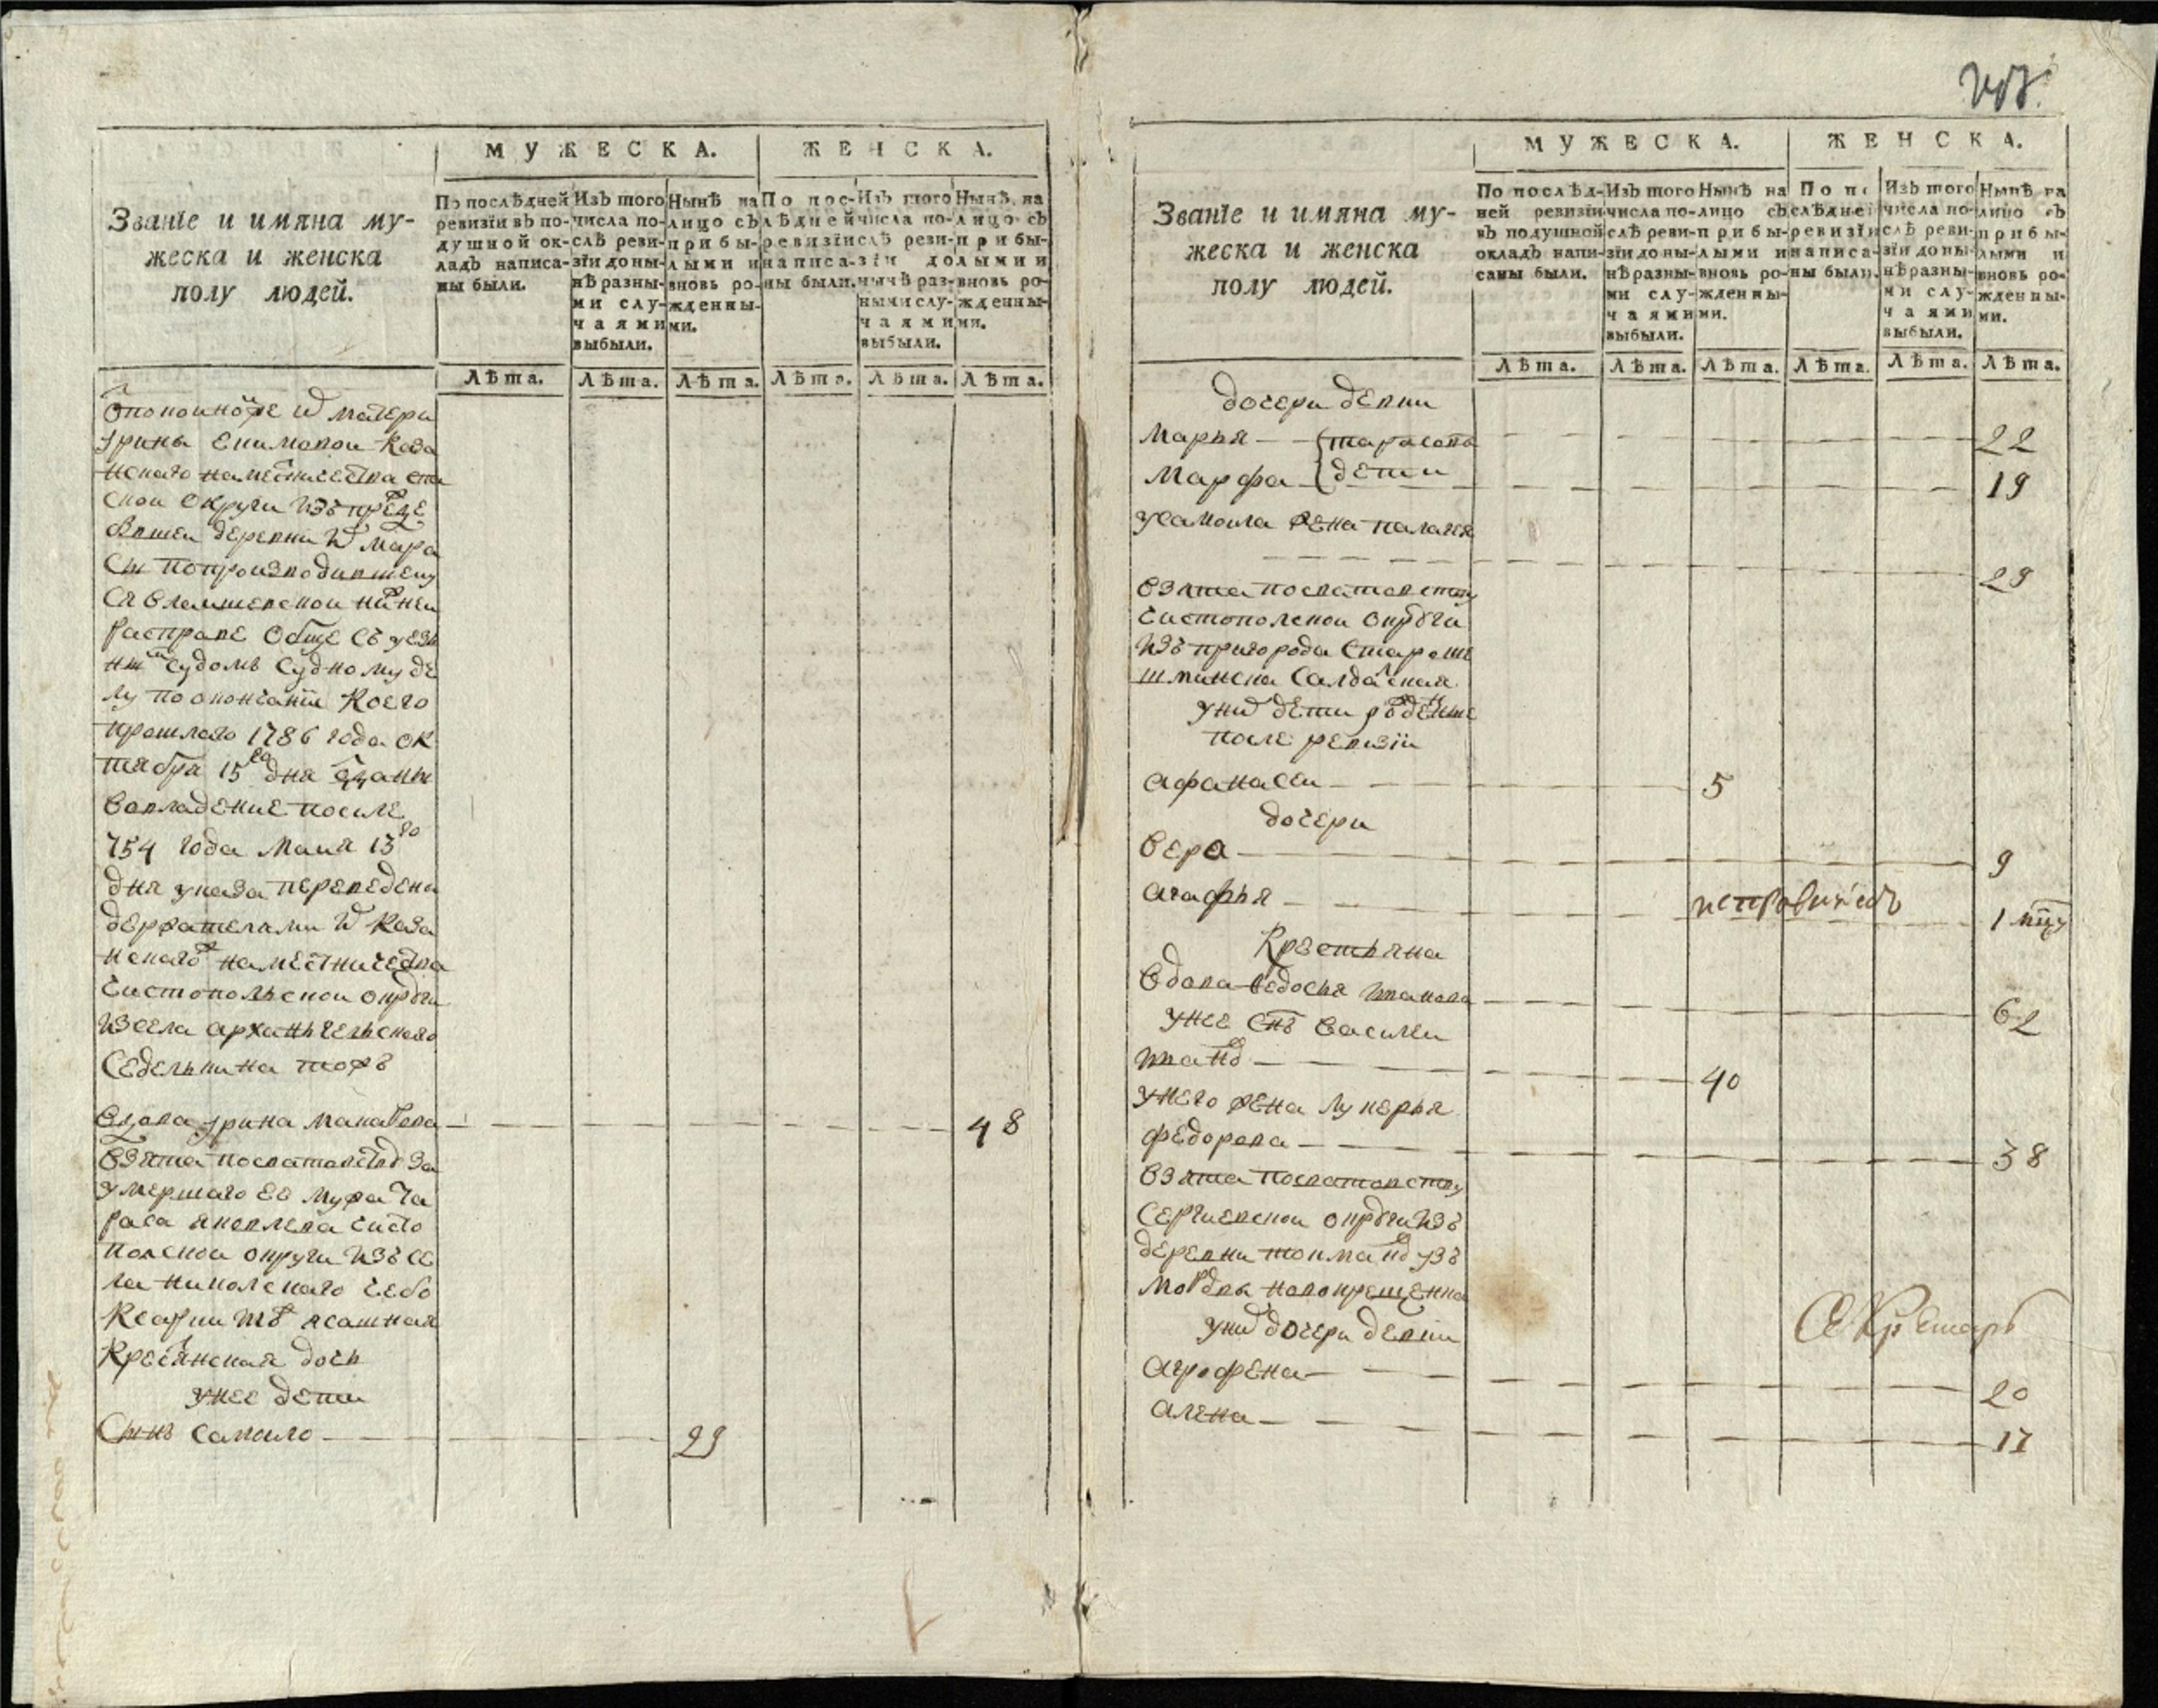 МУЖЕСКА. ЖЕНСКА.
Званїе и имяна му-
жеска и женска
полу людей.
По послѣдней
ревизїи въ по-
душной ок-
ладъ написа-
ны были.
Изъ того
числа по-
слѣ реви-
зїи доны-
нѣ разны-
ми слу-
чаями
выбыли.
Нынѣ на
лицо съ
прибы-
лыми и
вновь ро-
жденны-
ми.
По пос-
лѣдней
ревизїи
написа-
ны были.
Изъ того
числа по-
слѣ реви-
зїи до
нынѣ раз-
ными слу-
чаями
выбыли.
Нынѣ на
лицо съ
прибы-
лыми и
вновь ро-
жденны-
ми.
Лѣта. Лѣта. Лѣта. Лѣта. Лѣта. Лѣта.
матери
урины екимовои каза
нскаго наместничества
скои округи изъ
деревни
попроизводившему
ся
расправе обще съ уезд
нымъ судомъ судному де
лу поокончанїи коего
прошлаго 1786 года ок
тября 15го дня
вовладение после
754 года маия 13го
дня указа переведена
держателями каза
нскаго наместничества
чистопольскои округи
изсела арханьгельскаго
седелькина тожъ
вдова урина
48
взята посватовству за
умершаго ее мужа та
раса яковлева чисто
полскои округи изъ се
ла николскаго чебо
ксарки тожъ ясашная
кресьянская дочь
унее дети
сынъ самоило
29
МУЖЕСКА. ЖЕНСКА.
Званїе и имяна му-
жеска и женска
полу людей.
По послѣд-
ней ревизїи
въ подушной
окладъ напи-
саны были.
Изъ того
числа по-
слѣ реви-
зїи доны-
нѣ разны-
ми слу-
чаями
выбыли.
Нынѣ на
лицо съ
прибы-
лыми и
вновь ро-
жденны-
ми.
По по
слѣдней
ревизїи
написа-
ны были.
Изъ того
числа по-
слѣ реви-
зїи доны-
нѣ разны-
ми слу-
чаями
выбыли.
Нынѣ на
лицо съ
прибы-
лыми и
вновь ро-
жденны-
ми.
Лѣта. Лѣта. Лѣта. Лѣта. Лѣта. Лѣта.
дочери девки
марья тарасовы 22
марфа дети 19
усамоила жена палагея
29
взята посватовству
чистополскои округи
изъ пригорода старошe
шминска салдатская
уних дети рожденные
после ревизїи
афанасеи 5
дочери
вера 9
агафья 1
крестьяна
вдова федосья иванова 62
унее снъ василеи
ивановъ 40
унего жена лукерья
федорова 38
взята посватовству
сергиевскои округи изъ
деревни изъ
мордвы новокрещенка
уних дочери девки
агрофена 20
алена 17
Секретарь